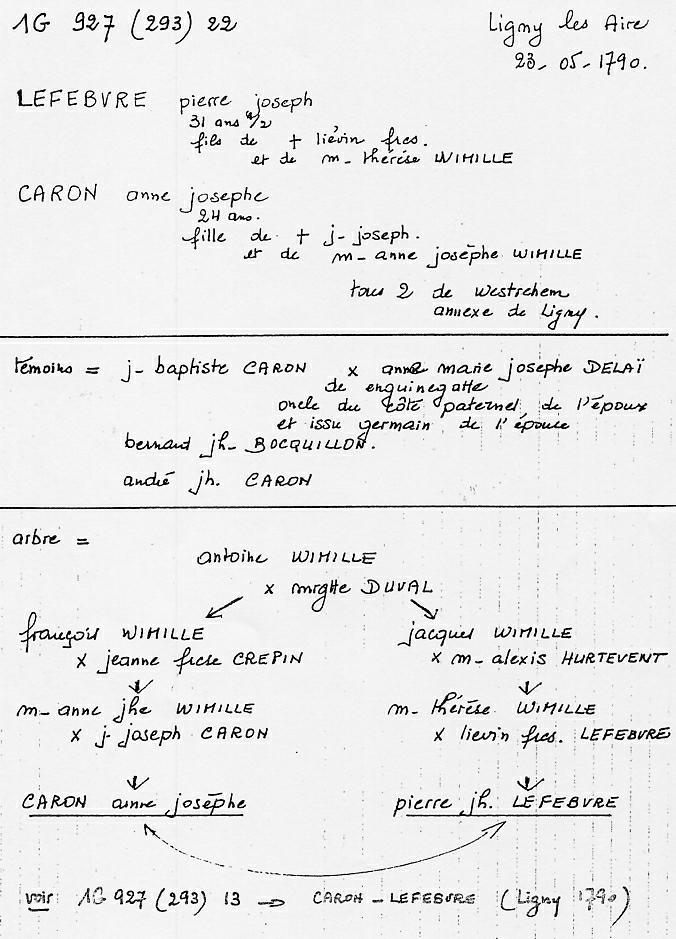 1G 927 (293) 22
Ligny les Aire
23-05-1790.
LEFEBVRE pierre joseph
31 ans 1/2
fils de + liévin fres.
et de m-thérèse WIMILLE
CARON anne josephe
24 ans.
fille de + j-joseph.
et de m-anne josèphe WIMILLE
tous 2 de westrehem
annexe de Ligny.
témoins = j-baptiste CARON x anne marie josephe DELAÏ
de enguinegatte
oncle du côté paternel de l'époux
et issu germain de l'épouse
bernard jh. BOCQUILLON.
andré jh. CARON
arbre =
antoine WIMILLE
x mrgtte DUVAL
françois WIMILLE jacques WIMILLE
x jeanne fcse CREPIN x m-alexis HURTEVENT
m-anne jhe WIMILLE m-thérèse WIMILLE
x j-joseph CARON x lievin fres. LEFEBVRE
CARON anne josèphe pierre jh. LEFEBVRE
voir 1G 927 (293) 13 → CARON-LEFEBVRE (Ligny 1790)